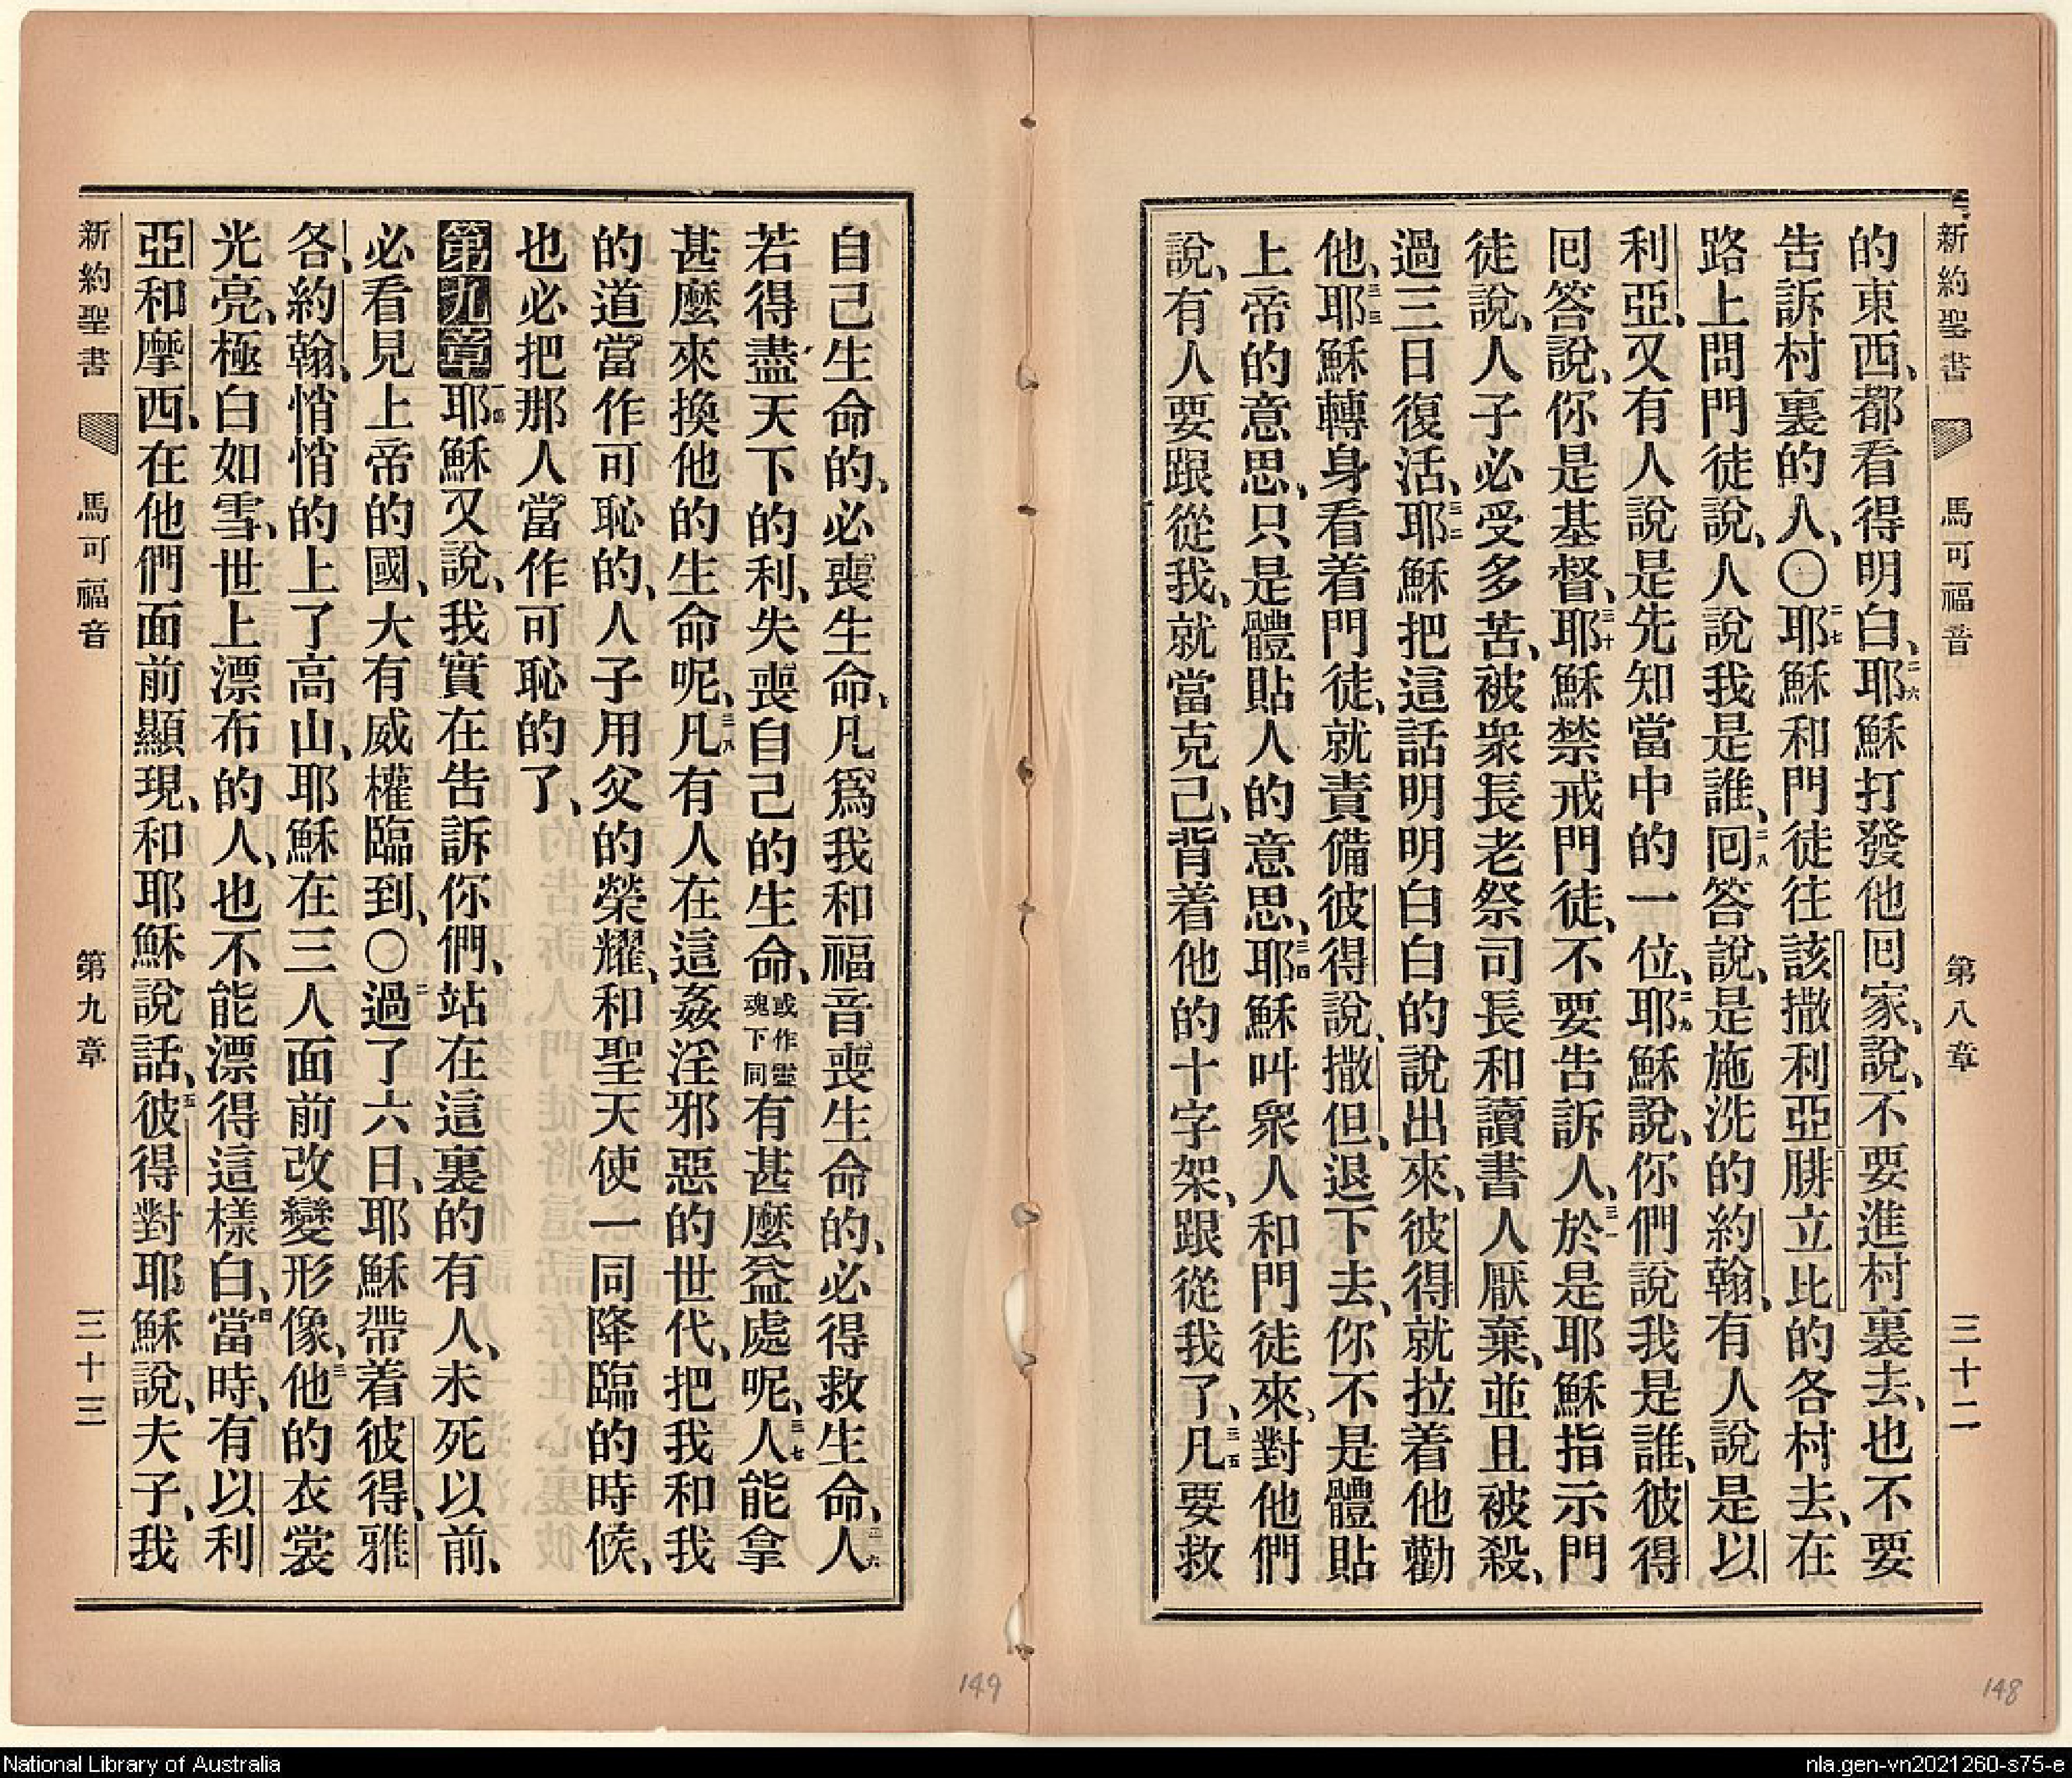 新約聖書 馬可福音 第八章 三十二
的東西、都看得明白、二六耶穌打發他囘家、說、不要進村裏去、也不要
告訴村裏的人、〇二七耶穌和門徒往該撒利亞腓立比的各村去、在
路上問門徒說、人說我是誰、二八囘答說、是施洗的約翰、有人說是以
利亞、又有人說是先知當中的一位、二九耶穌說、你們說我是誰、彼得
囘答說、你是基督、三十耶穌禁戒門徒、不要告訴人、三一於是耶穌指示門
徒說、人子必受多苦、被衆長老祭司長和讀書人厭棄、並且被殺、
過三日復活、三二耶穌把這話明明白白的說出來、彼得就拉着他勸
他、三三耶穌轉身看着門徒、就責備彼得說、撒但、退下去、你不是體貼
上帝的意思、只是體貼人的意思、三四耶穌叫衆人和門徒來、對他們
說、有人要跟從我、就當克己、背着他的十字架、跟從我了、三五凡要救
自己生命的、必喪生命、凡爲我和福音喪生命的、必得救生命、三六人
若得盡天下的利、失喪自己的生命、或作靈魂下同有甚麼益處呢、三七人能拿
甚麼來換他的生命呢、三八凡有人在這姦淫邪惡的世代、把我和我
的道當作可恥的、人子用父的榮耀、和聖天使一同降臨的時候、
也必把那人當作可恥的了、
第九章一節耶穌又說、我實在告訴你們、站在這裏的有人、未死以前、
必看見上帝的國、大有威權臨到、〇二過了六日、耶穌帶着彼得、雅
各、約翰、悄悄的上了高山、耶穌在三人面前改變形像、三他的衣裳
光亮、極白如雪、世上漂布的人、也不能漂得這樣白、四當時、有以利
亞和摩西、在他們面前顯現、和耶穌說話、五彼得對耶穌說、夫子、我
新約聖書 馬可福音 第九章 三十三
149
148
National Library of Australia
nla.gen-vn2021260-s75-e